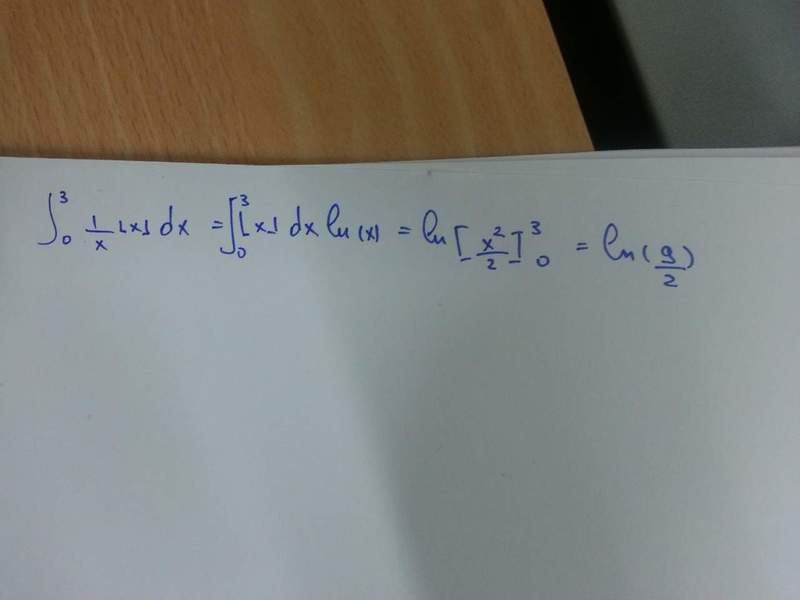 ∫₀³ 1/x ⌊x⌋ dx = ∫₀³ ⌊x⌋ dx ln(x) = ln [x²/2]₀³ = ln(9/2)